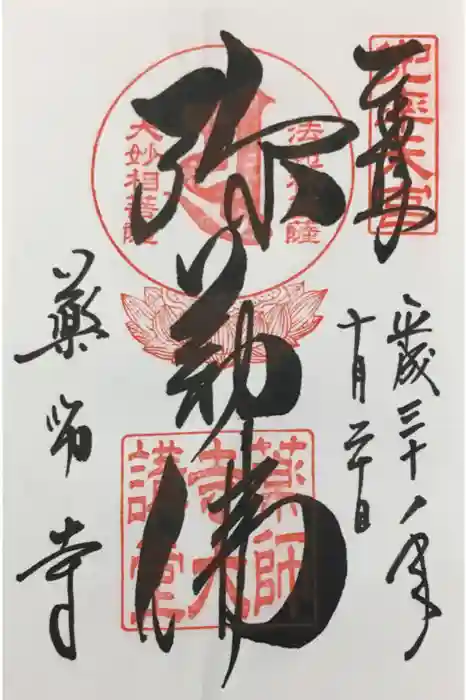 奉拝
平成三十年
十月二十日
弥勒佛
法苑林菩薩
大妙相菩薩
薬師
寺大
講堂
薬師寺